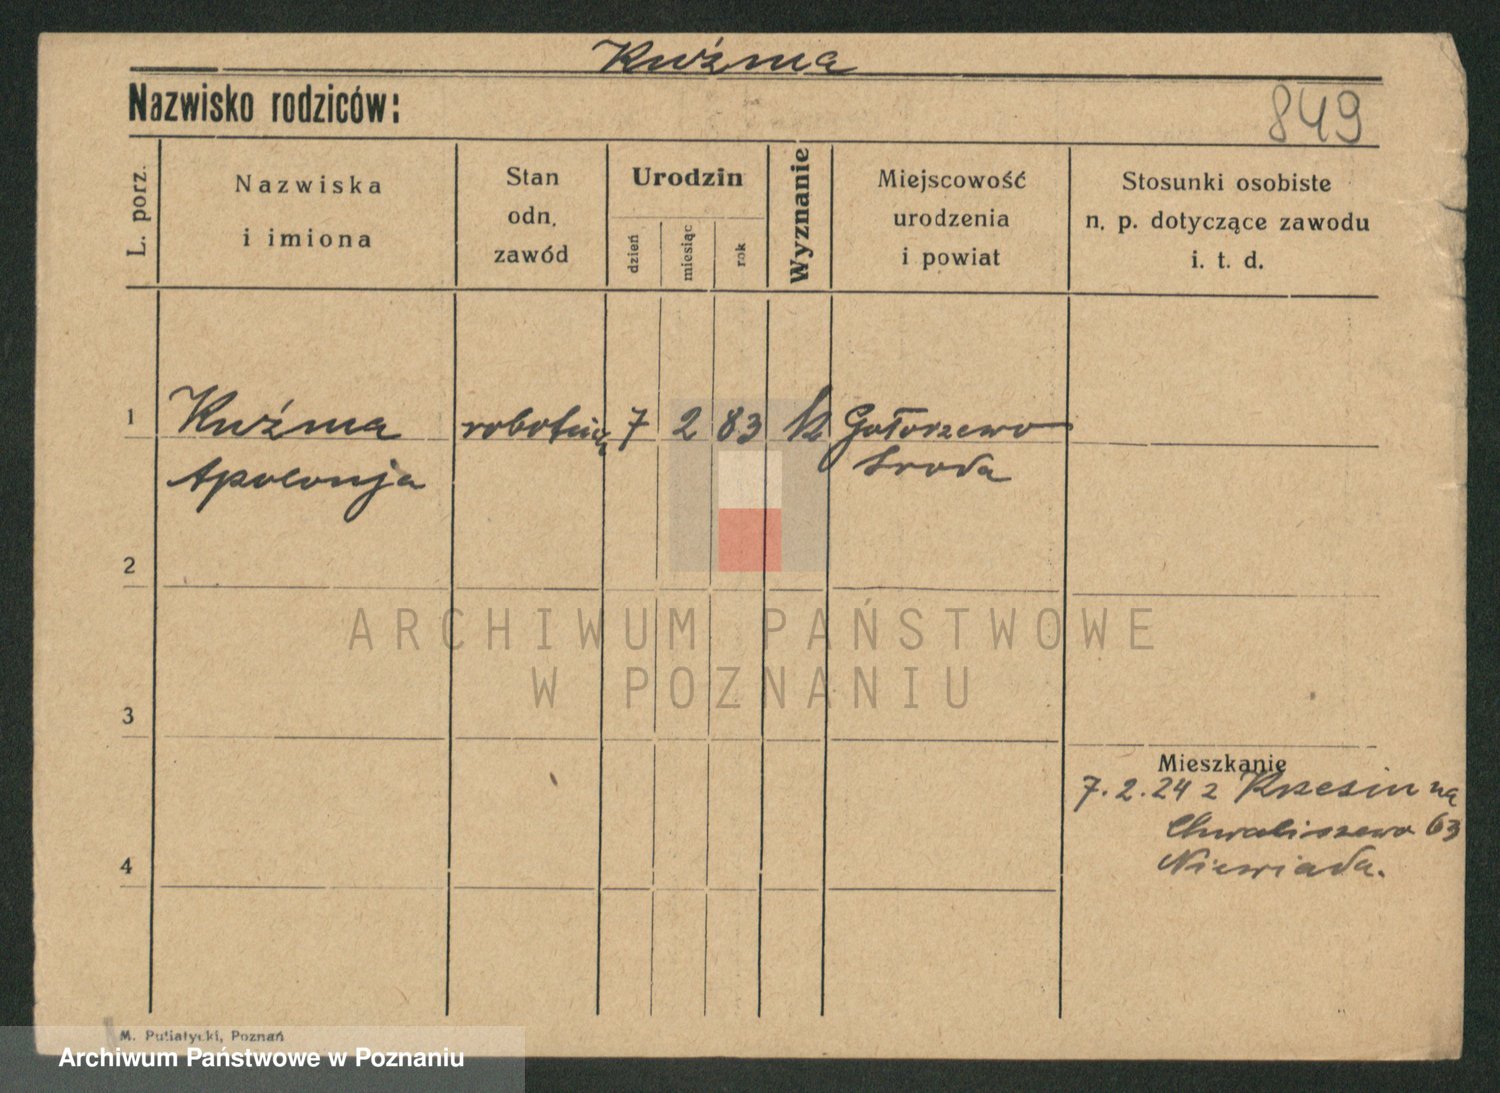 Kuźma
Nazwisko rodziców:
849
L. porz.
Nazwiska
i imiona
Stan
odn.
zawód
Urodzin
dzień
miesiąc
rok
Wyznanie
Miejscowość
urodzenia
i powiat
Stosunki osobiste
n. p. dotyczące zawodu
i. t. d.
1 Kuźma 7 2 83 k
Apolonja Sroda
2
ARCHIWUM PAŃSTWOWE
W POZNANIU
3
Mieszkanie
7.2.24 z Krzesin na
Chwaliszewo 63
Niewiada.
4
M. Putiatycki, Poznań
Archiwum Państwowe w Poznaniu